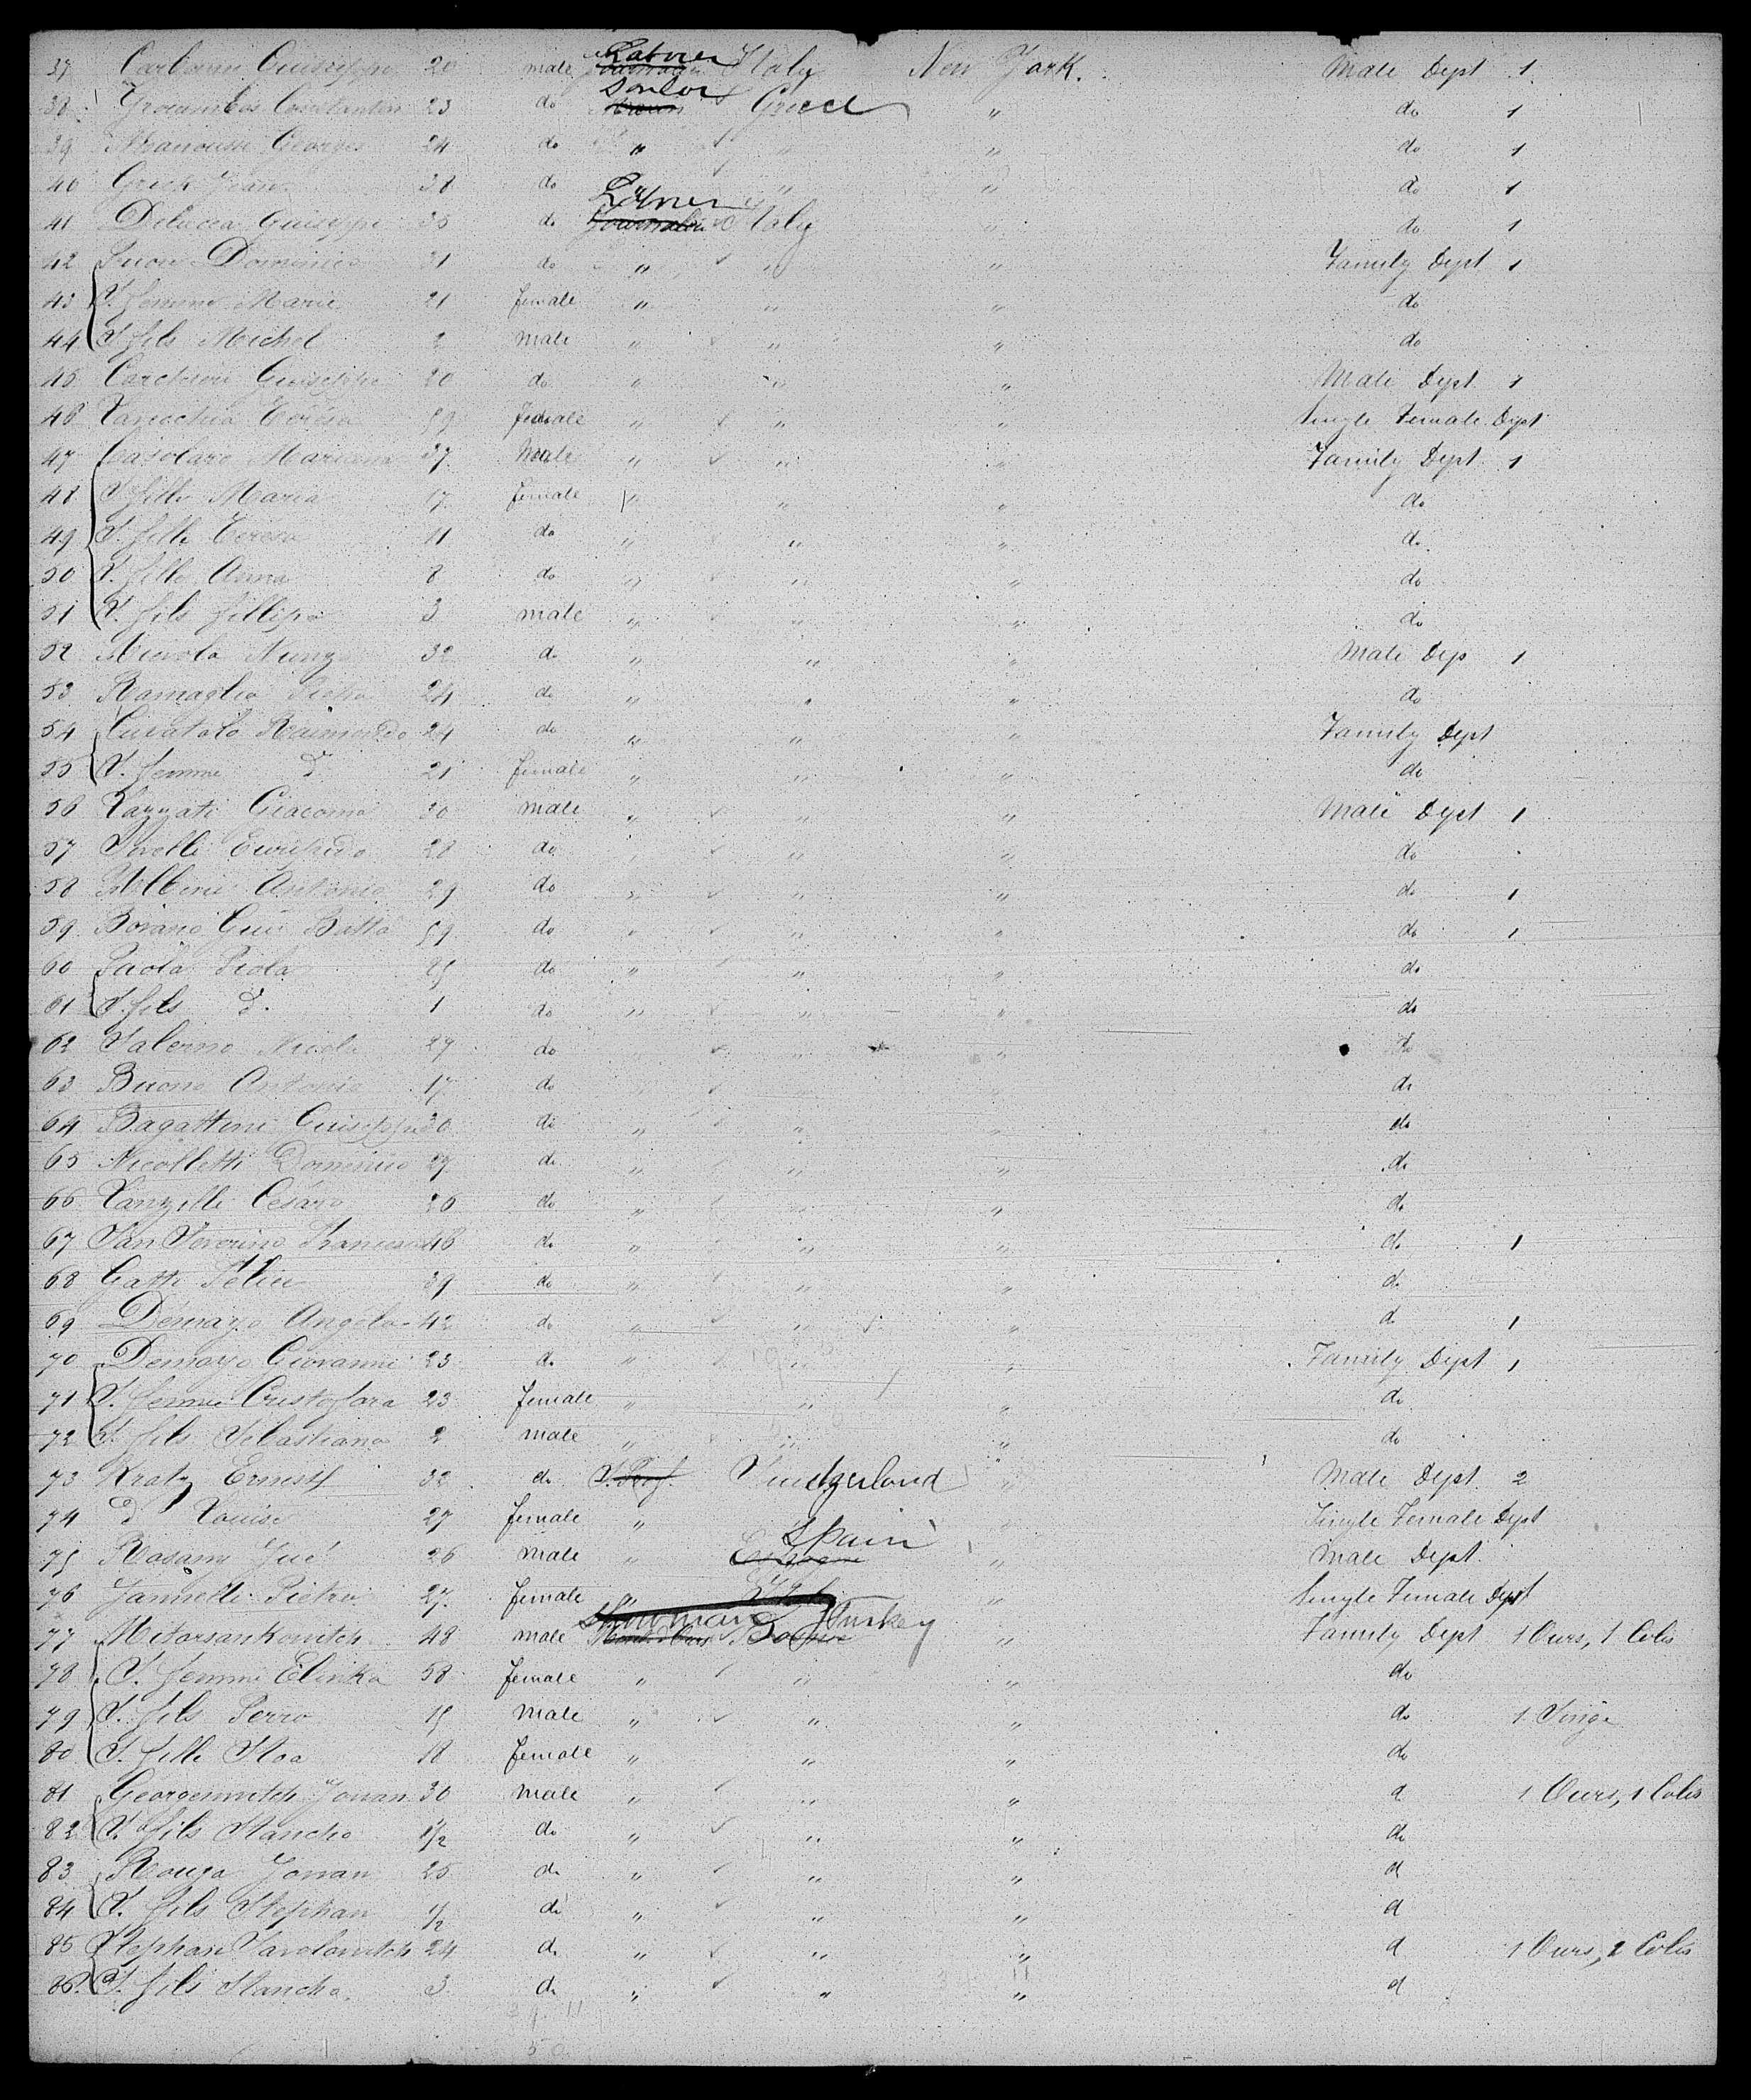 37 Carbone Guiseppe 20 male Laborer Italy New York. Male Dept 1
38 Constantin 23 do Sailor Greece " do 1
39 Manousse Georges 24 do " " " do 1
40 Greek Jean 38 do " " " do 1
41 Delucca Guiseppe 35 do Laborer Italy " do 1
42 Dominico 31 do " " " Family Dept 1
43 S. femme Marie 21 female " " " do
44 S. fils Michel 2 male " " " do
45 Guiseppe 20 do " " " Male Dept 1
46 Terésa 59 female " " " Single Female Dept
47 Casolaro 37 Male " " " Family Dept 1
48 S. fille Maria 17 female " " " do
49 S. fille Teresa 11 do " " " do
50 S. fille Anna 8 do " " " do
51 S. fils fillipo 3 male " " " do
52 Nunz 32 do " " " Male Dep 1
53 Ramaglia Pietro 24 do " " " do
54 Curatolo Raimondo 24 do " " " Family Dept
55 S. femme d 21 female " " " do
56 Lazzati Giacomo 30 male " " " Male Dept 1
57 28 do " " " do
58 Antonio 29 do " " " do 1
59 Batta 59 do " " " do 1
60 Paola 25 do " " " do
61 S. fils d. 1 do " " " do
62 Salerno Nicola 27 do " " do
63 Buono Antonio 17 do " " " do
64 Bagattini Guiseppe 30 do " " " do
65 Nicolletti Dominico 27 do " " " do
66 Césaro 26 do " " " do
67 San Severino Francesco 46 do " " " do 1
68 Gatti Felice 39 do " " " do
69 Démayo Angélo 42 do " " " do 1
70 Demayo Giovanni 23 do " " " Family Dept 1
71 S. femme Cristofara 23 female " " " do
72 S. fils Sebastiano 2 male " " " do
73 Kratz Ernest 32 do S. Prof. Switzerland " Male Dept 2
74 d Louise 27 female " " Single Female Dept
75 26 male " Espagne Spain " Male Dept.
76 Jannelli Pietro 27 female " Italy " Single Female Dept
77 Mitarsankovitch 48 male Showman Turkey " Family Dept 1 Ours, 1 Colis
78 S. femme Elinka 58 female " " " do
79 S. fils Perro 15 male " " " do 1 Singe
80 S. fille Stoa 18 female " " " do
81 Georgenvitch Jovan 30 male " " " d 1 Ours, 1 Colis
82 S. fils Stancho 1/2 do " " " do
83 Jovan 25 do " " " d
84 S. fils Stephan 1/2 do " " " d
85 Stephan 24 do " " " d 1 Ours, 2 Colis
86. S. fils Stancho. 3 do " " " d